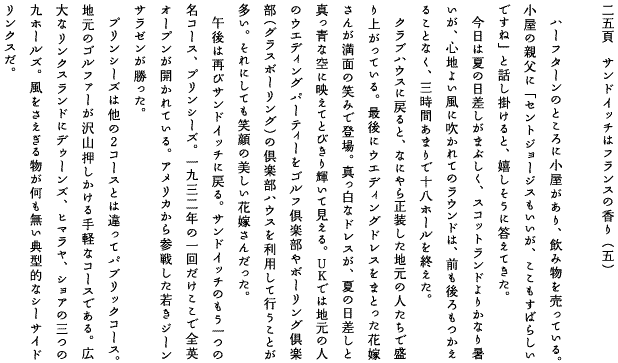 二五頁　サンドイッチはフランスの香り（五）
　ハーフターンのところに小屋があり、飲み物を売っている。
小屋の親父に「セントジョージスもいいが、ここもすばらしい
ですね」と話し掛けると、嬉しそうに答えてきた。
　今日は夏の日差しがまぶしく、スコットランドよりかなり暑
いが、心地よい風に吹かれてのラウンドは、前も後ろもつかえ
ることなく、三時間あまりで十八ホールを終えた。
　クラブハウスに戻ると、なにやら正装した地元の人たちで盛
り上がっている。最後にウエディングドレスをまとった花嫁
さんが満面の笑みで登場。真っ白なドレスが、夏の日差しと
真っ青な空に映えてとびきり輝いて見える。ＵＫでは地元の人
のウエディングパーティーをゴルフ倶楽部やボーリング倶楽
部（グラスボーリング）の倶楽部ハウスを利用して行うことが
多い。それにしても笑顔の美しい花嫁さんだった。
　午後は再びサンドイッチに戻る。サンドイッチのもう一つの
名コース、プリンシーズ。一九三二年の一回だけここで全英
オープンが開かれている。アメリカから参戦した若きジーン
サラゼンが勝った。
　プリンシーズは他の２コースとは違ってパブリックコース。
地元のゴルファーが沢山押しかける手軽なコースである。広
大なリンクスランドにデゥーンズ、ヒマラヤ、ショアの三つの
九ホールズ。風をさえぎる物が何も無い典型的なシーサイド
リンクスだ。